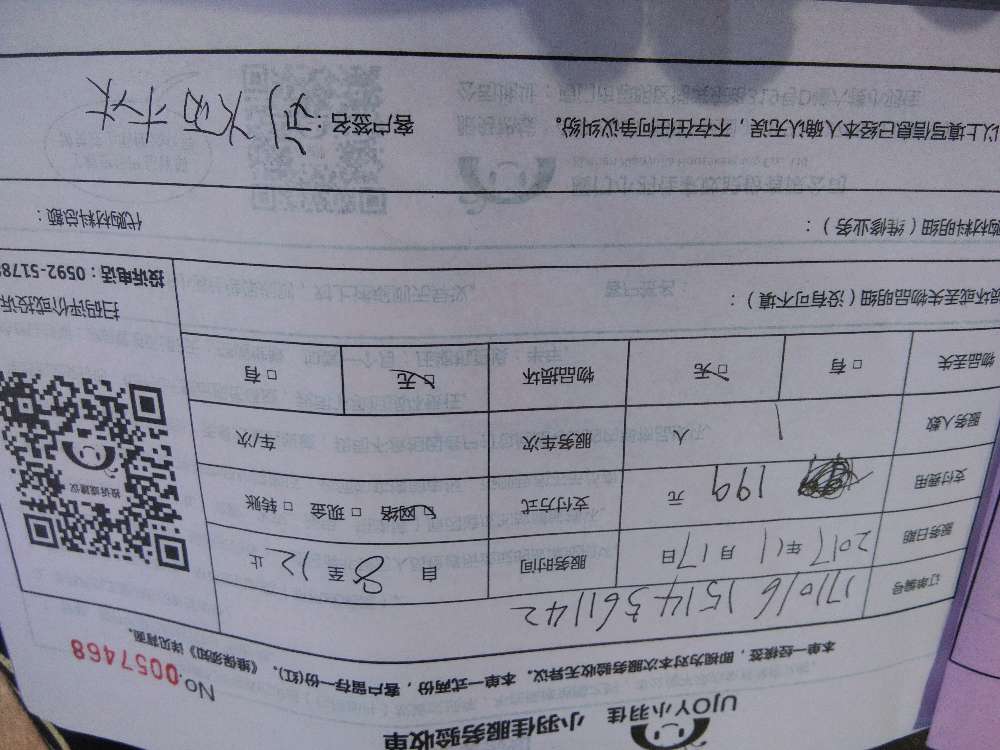 UJOY小羽佳 小羽佳服务验收单
本单一经核签，即视为对本次服务验收无异议。本单一式两份，客户留存一份(红)。《维保须知》详见背面。
No. 0057468
订单编号 171016151436 1142
服务日期 2017年11月17日 服务时间 自8至12止
支付费用 199元 支付方式 网络 现金 转账
服务人数 1人 服务车次 车/次
物品丢失 有 无 物品损坏 无 有
损坏或丢失物品明细（没有可不填）：
投诉或建议
扫码评价或投诉
投诉电话：0592-5178
购材料明细（维修业务）： 代购材料总额：
以上填写信息已经本人确认无误，不存在任何争议纠纷。 客户签名：